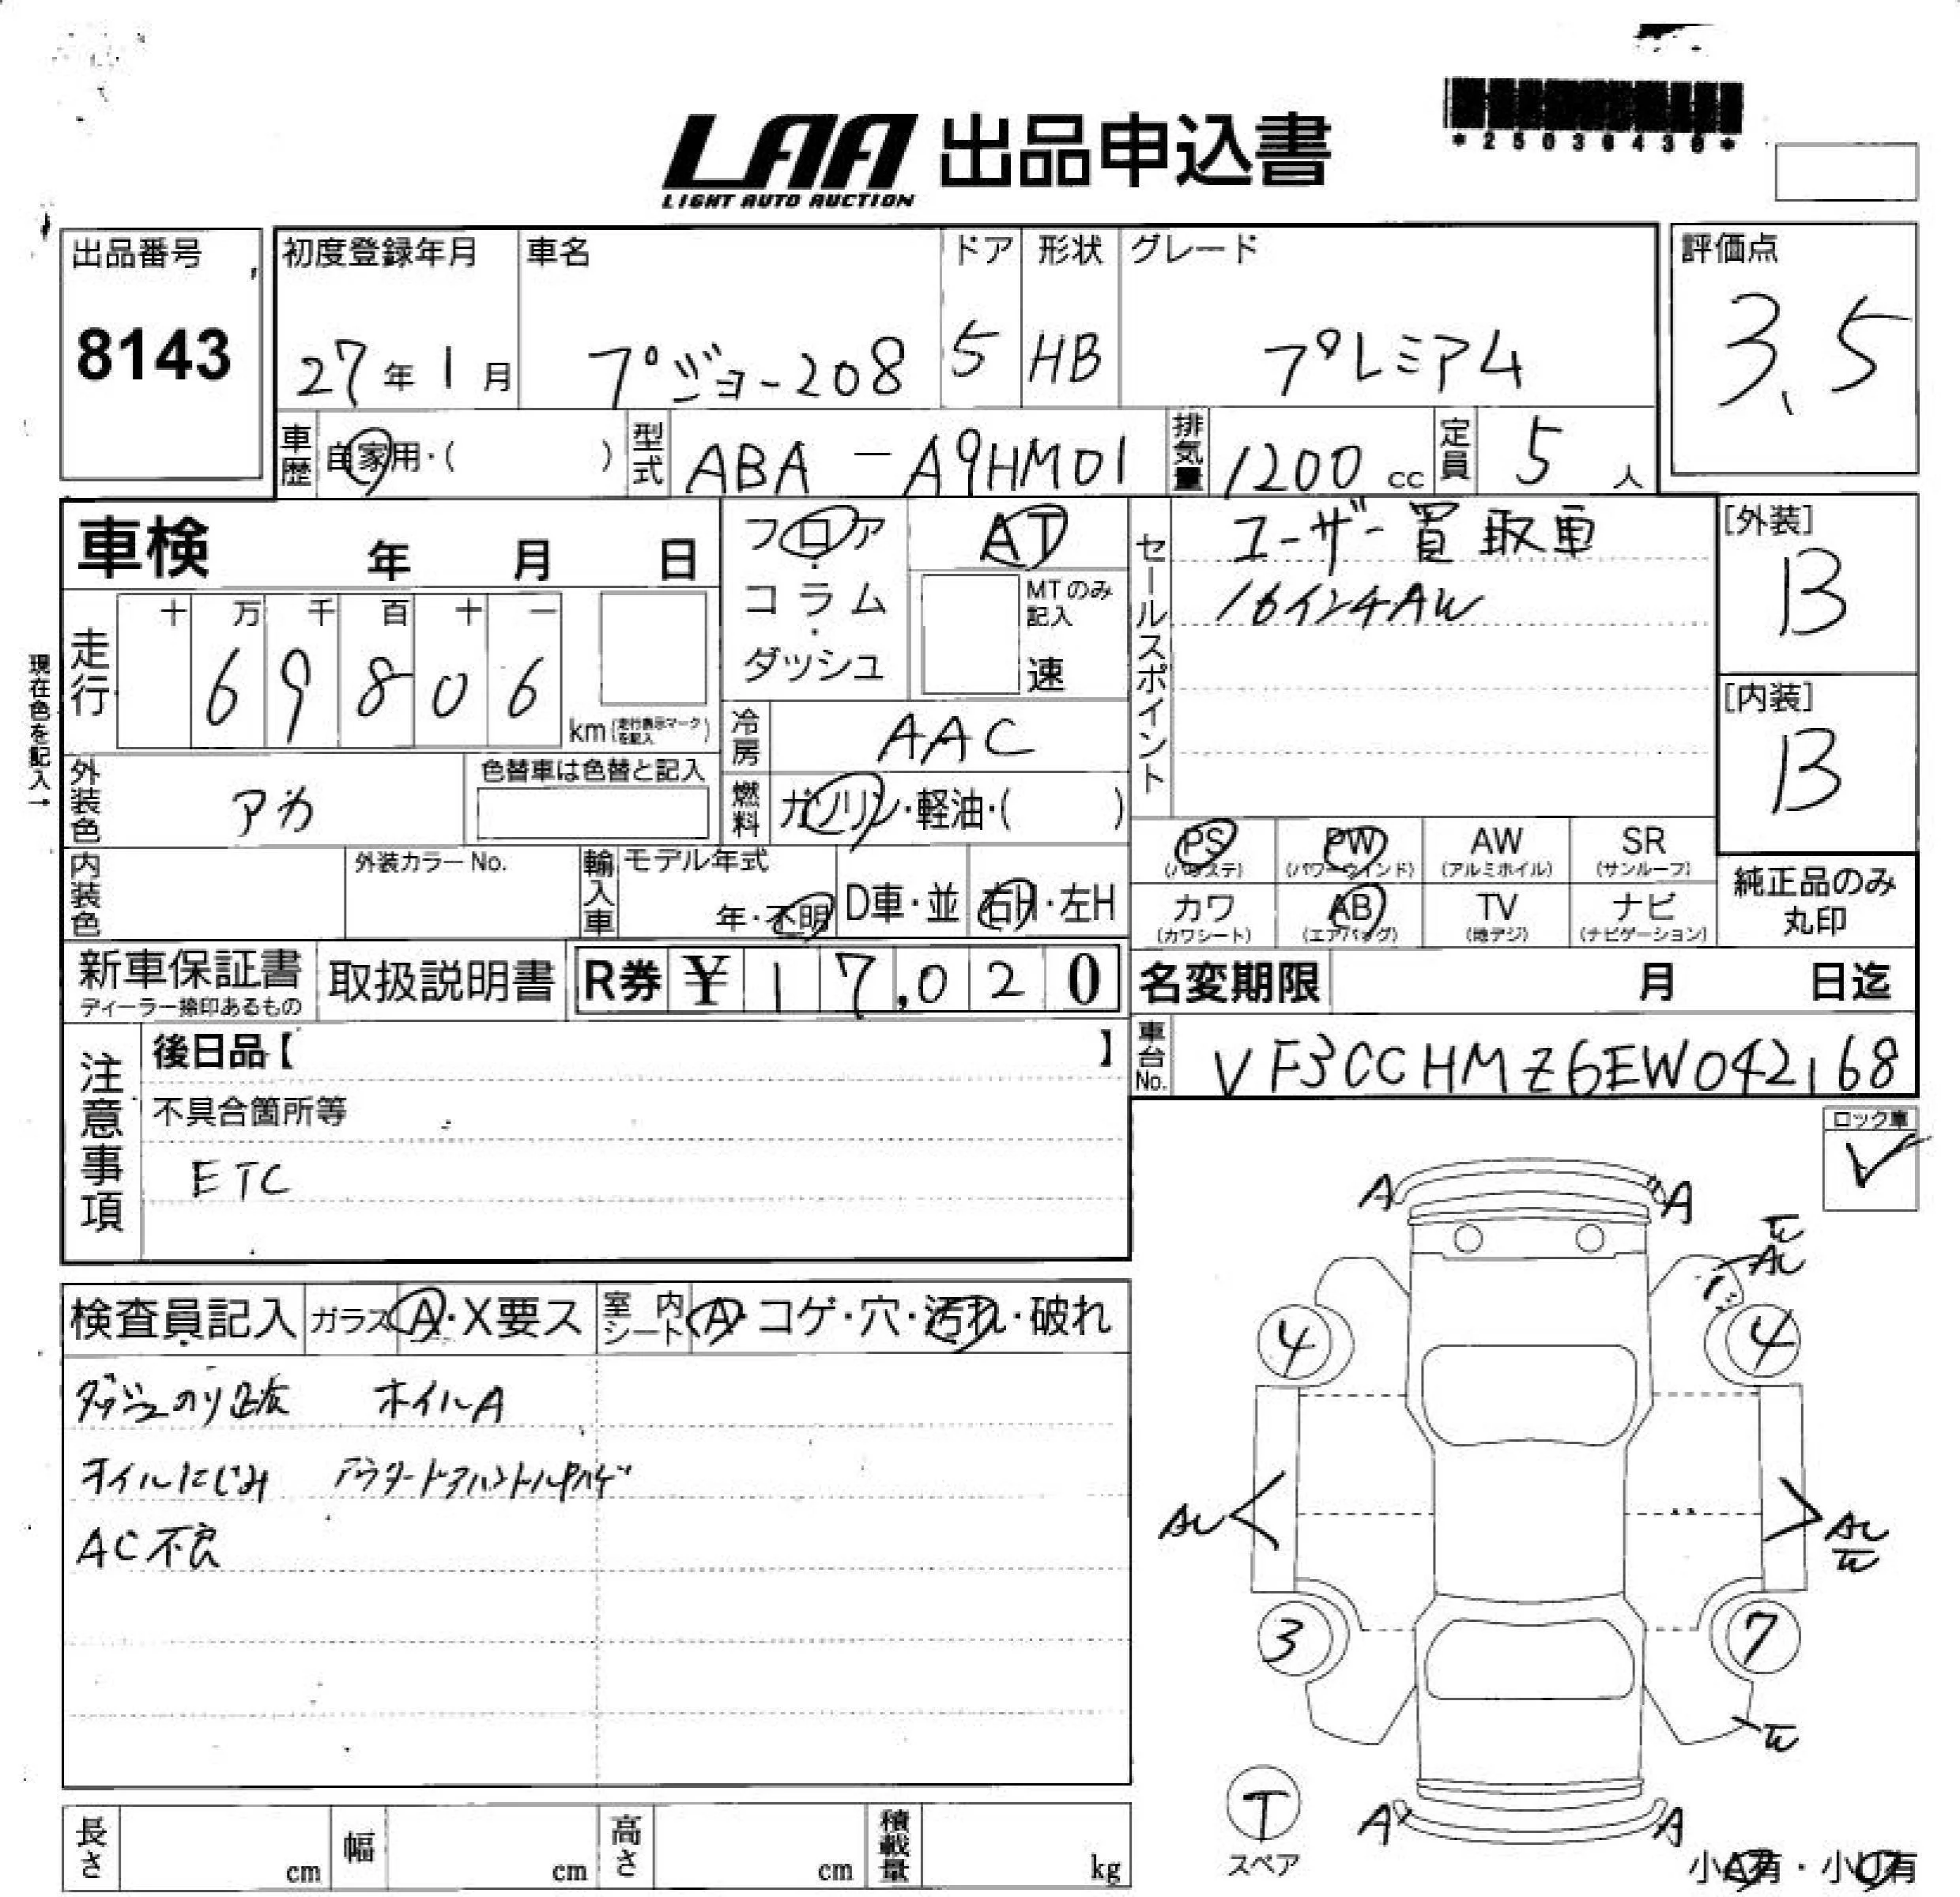 *25030430*
LAA 出品申込書
LIGHT AUTO AUCTION
出品番号 8143
初度登録年月 27年1月
車名 プジョー208
ドア 5
形状 HB
グレード プレミアム
評価点 3.5
車歴 自家用・( )
型式 ABA-A9HM01
排気量 1200cc
定員 5人
車検 年 月 日
フロア・コラム・ダッシュ
AT
MTのみ記入 速
セールスポイント
ユーザー買取車
16インチAW
[外装] B
[内装] B
現在色を記入→
走行 十 万 千 百 十 一
69806 km(走行表示マークを記入)
冷房 AAC
外装色 アカ
色替車は色替と記入
燃料 ガソリン・軽油・( )
内装色
外装カラーNo.
輸入車 モデル年式 年・不明
D車・並 右H・左H
PS (パワステ) PW (パワーウインド) AW (アルミホイル) SR (サンルーフ)
カワ (カワシート) AB (エアバッグ) TV (地デジ) ナビ (ナビゲーション)
純正品のみ丸印
新車保証書 ディーラー捺印あるもの
取扱説明書
R券 ¥17,020
名変期限 月 日迄
車台No. VF3CCHMZ6EW042168
注意事項
後日品【 】
不具合箇所等
ETC
ロック車 ✓
検査員記入 ガラス A・X要ス 室内シート A・コゲ・穴・汚れ・破れ
ダッシュのり跡 ホイルA
オイルにじみ アウタードアハンドル中ハゲ
AC不良
A A
AU
4 4
AU AU
3 7
T
スペア
A A
小A有・小U有
長さ cm 幅 cm 高さ cm 積載量 kg